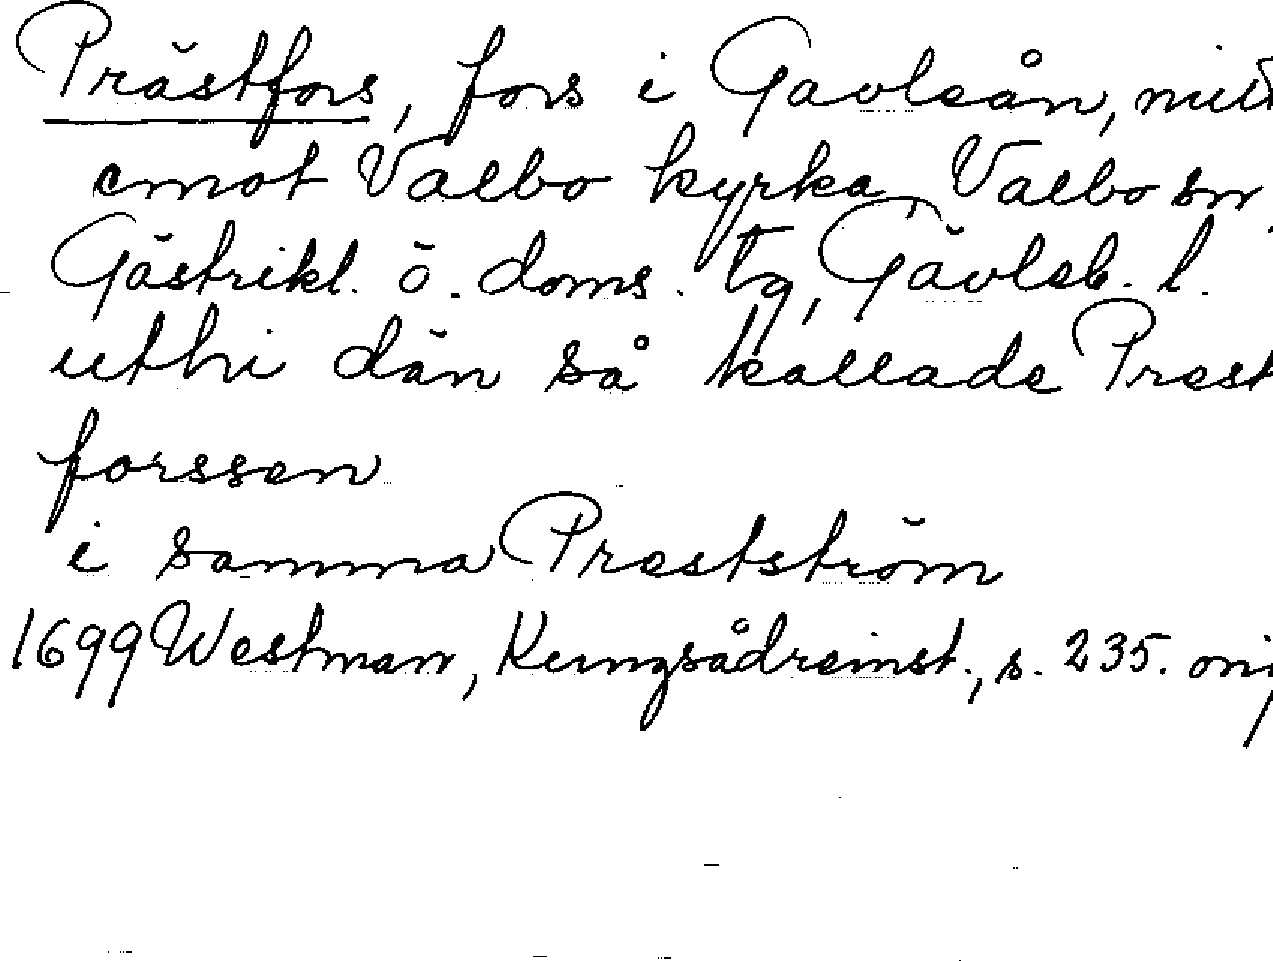 Prästfors, fors i Gavleån, mitt
emot Valbo kyrka, Valbo sn,
Gästrikl. ö. doms. tg, Gävleb. l.
uthi dän så kallade Prest
forssen
i samma Prestström
1699 Westman, Kungsådreinst., s. 235.